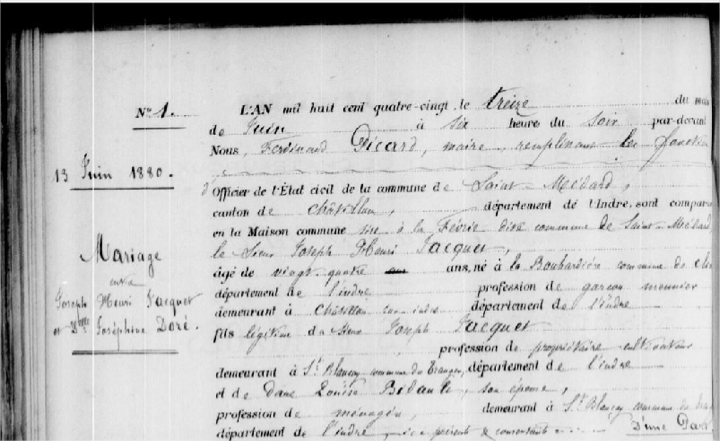 N° 1.
13 Juin 1880.
Mariage
entre
Joseph Henri Jacquet
et Dlle Joséphine Doré.
L'AN mil huit cent quatre-vingt, le treize du mois
de Juin à six heure du soir par-devant
Nous, Ferdinand Picard, maire, remplissant les fonction
d'Officier de l'État civil de la commune de Saint-Médard,
canton de Châtillon, département de l'Indre, sont comparu
en la Maison commune sise à la Févrie dite commune de Saint-Médard
le Sieur Joseph Henri Jacquet,
âgé de vingt-quatre ans, né à la Bouhardière commune de
département de l'indre profession de garçon meunier
demeurant à Châtillon sur indre département de l'indre
fils légitime de Sieur Joseph Jacquet
profession de propriétaire cultivateur
demeurant à St commune de département de l'indre
et de Dame Louise son épouse,
profession de ménagère, demeurant à St commune de
département de l'indre présents & consentants D'une Part